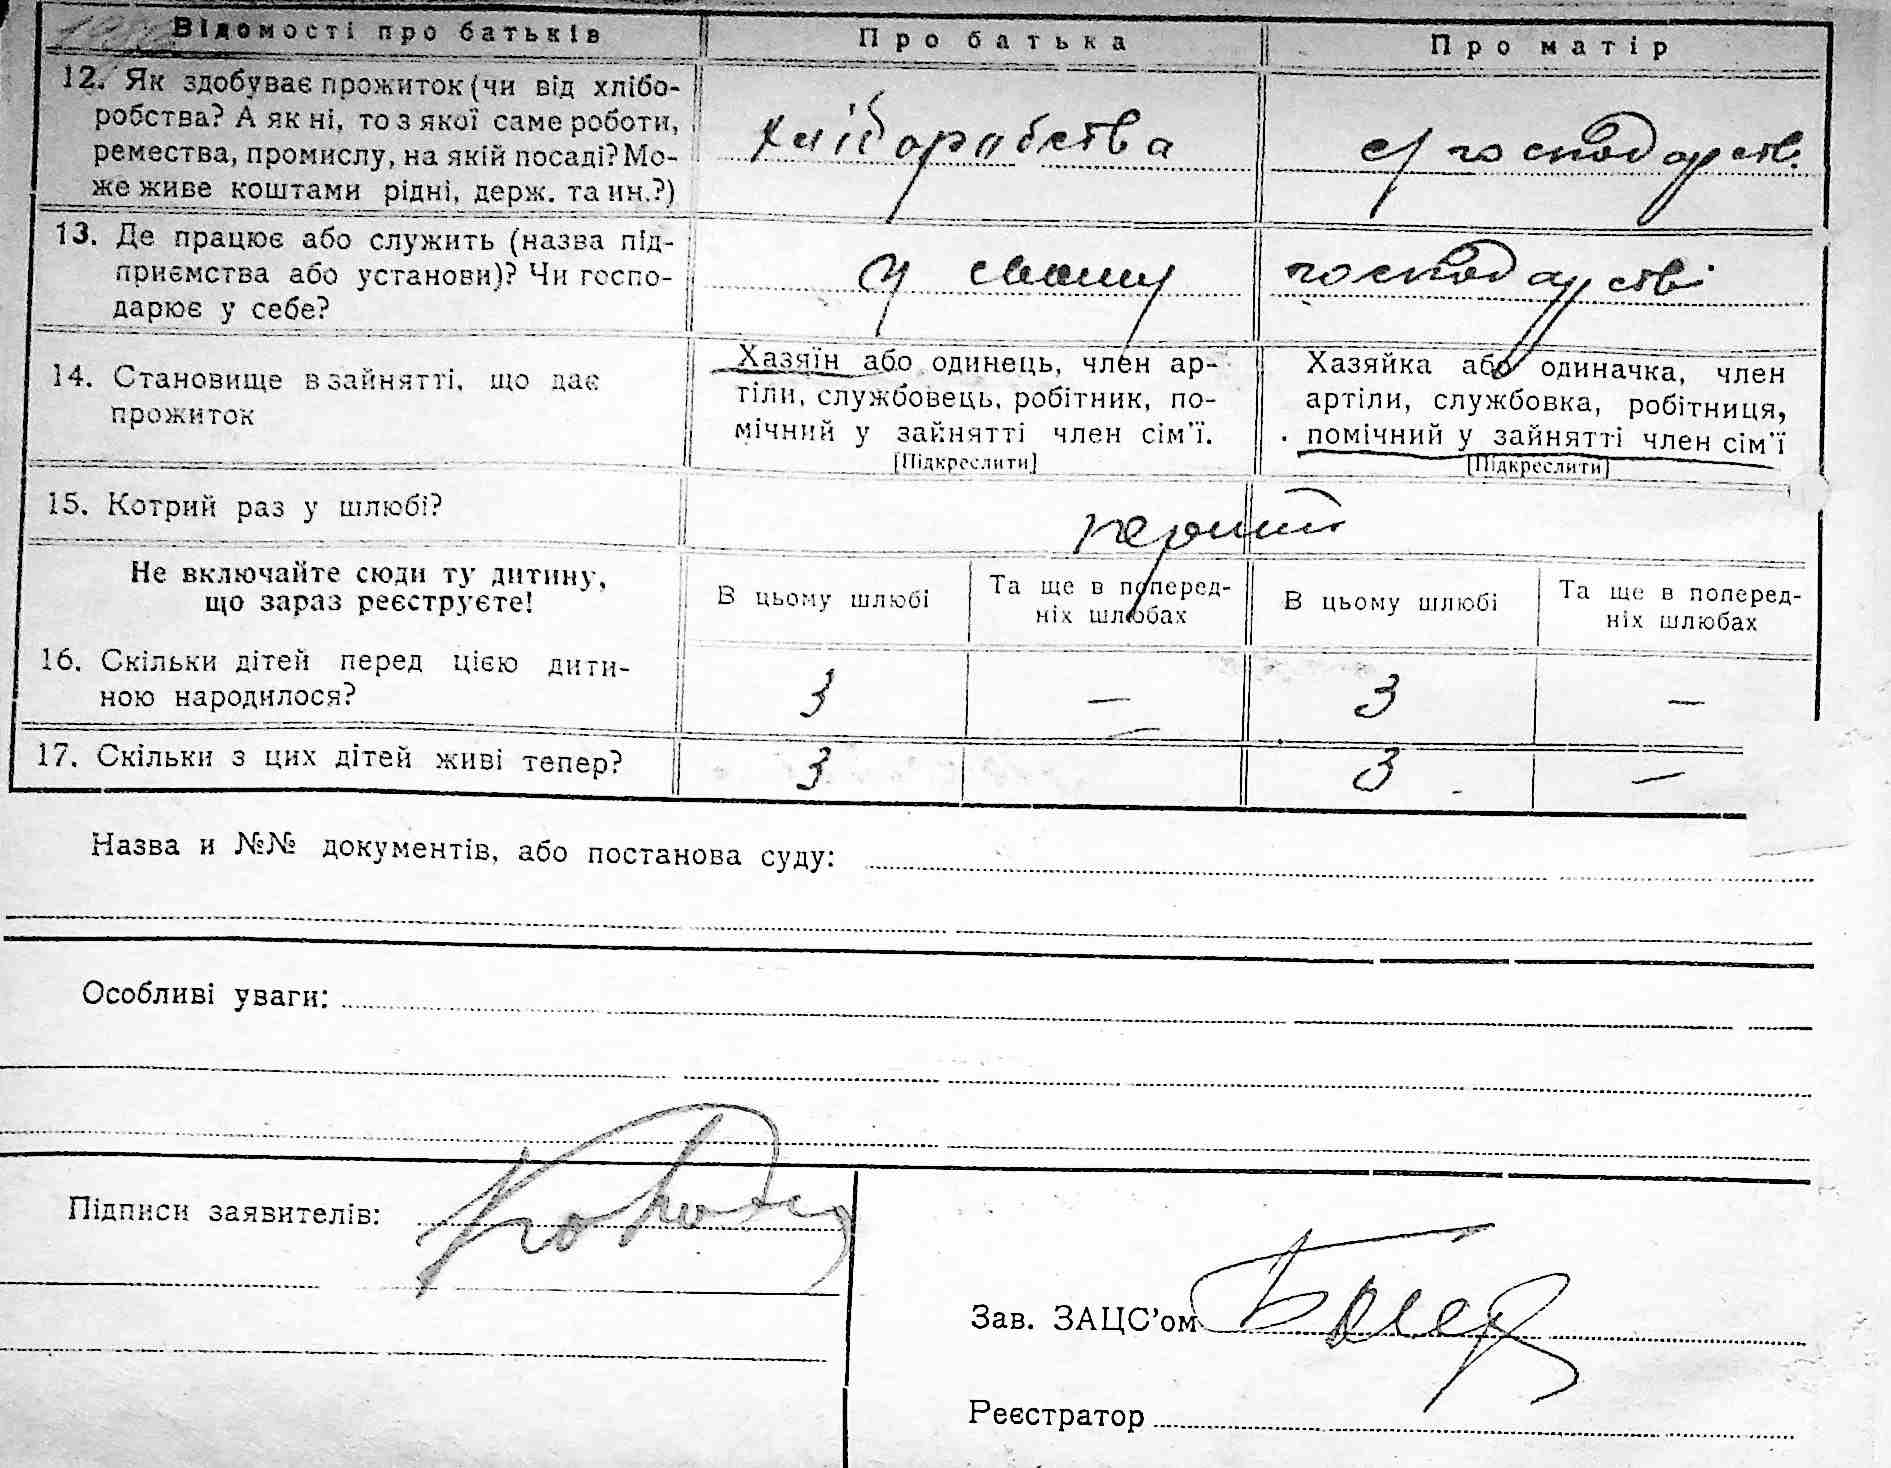 Відомості про батьків Про батька Про матір
12. Як здобуває прожиток (чи від хлібо-
робства? А як ні, то з якої саме роботи,
ремества, промислу, на якій посаді? Мо-
же живе коштами рідні, держ. та ин.?)
хліборобства
с/господарств.
13. Де працює або служить (назва під-
приємства або установи)? Чи госпо-
дарює у себе?
у своєму господарстві
14. Становище в зайнятті, що дає
прожиток
Хазяїн або одинець, член ар-
тіли, службовець, робітник, по-
мічний у зайнятті член сім'ї.
[Підкреслити]
Хазяйка або одиначка, член
артіли, службовка, робітниця,
помічний у зайнятті член сім'ї
[Підкреслити]
15. Котрий раз у шлюбі?
перший
Не включайте сюди ту дитину,
що зараз реєструєте!
В цьому шлюбі
Та ще в поперед-
ніх шлюбах
В цьому шлюбі
Та ще в поперед-
ніх шлюбах
16. Скільки дітей перед цією дити-
ною народилося?
3 — 3 —
17. Скільки з цих дітей живі тепер?
3 — 3 —
Назва и №№ документів, або постанова суду:
Особливі уваги:
Підписи заявителів:
Зав. ЗАЦС'ом
Реєстратор